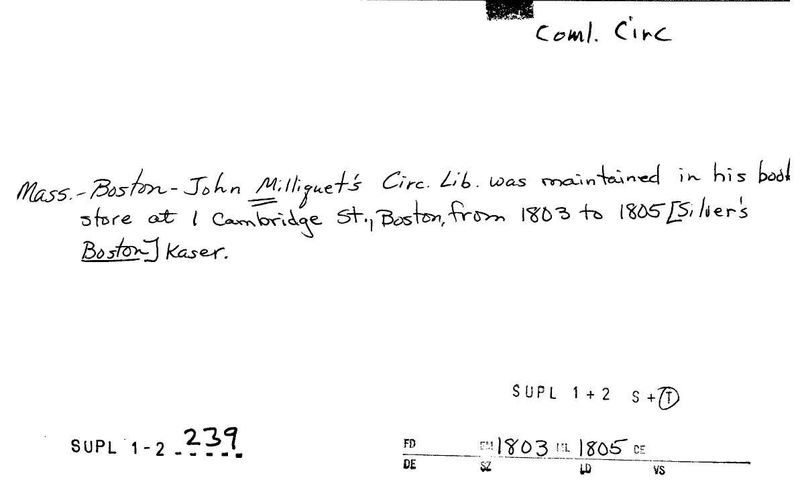 Coml. Circ
Mass.-Boston-John Milliquet's Circ. Lib. was maintained in his book
store at 1 Cambridge St., Boston, from 1803 to 1805 [Silver's
Boston] Kaser.
SUPL 1+2 S+T
SUPL 1-2 239
FD 1803 1805 CE
DE SZ LD VS